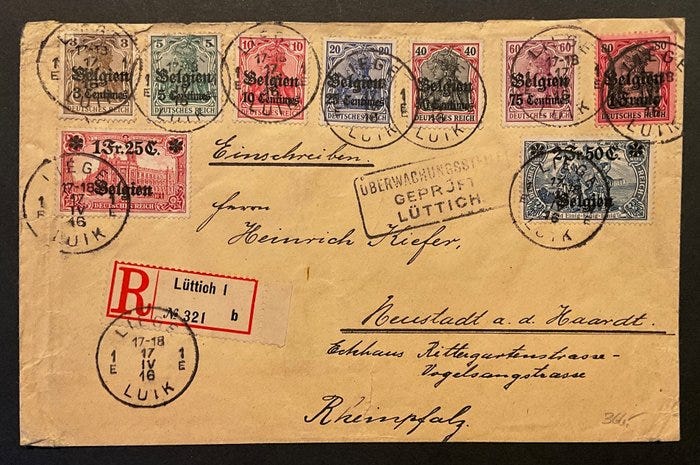 3 3
Belgien
3 Centimes
DEUTSCHES REICH
5 5
Belgien
5 Centimes
DEUTSCHES REICH
10 10
Belgien
10 Centimes
DEUTSCHES REICH
20 20
Belgien
25 Centimes
DEUTSCHES REICH
40 40
Belgien
50 Centimes
DEUTSCHES REICH
60 60
Belgien
75 Centimes
DEUTSCHES REICH
80 80
Belgien
1 Franc
DEUTSCHES REICH
1Fr.25C.
Belgien
DEUTSCHES REICH
2Fr.50C.
Belgien
LIEGE
17-18
17
IV
16
1 E
LUIK
Einschreiben.
ÜBERWACHUNGSSTELLE
GEPRÜFT
LÜTTICH
Herrn
Heinrich Kiefer,
R Lüttich 1
№ 321 b
Neustadt a. d. Haardt.
Eckhaus Rittergartenstrasse-
Vogelsangstrasse
Rheinpfalz.
LIEGE
1 E
17-18
17
IV
16
1 E
LUIK